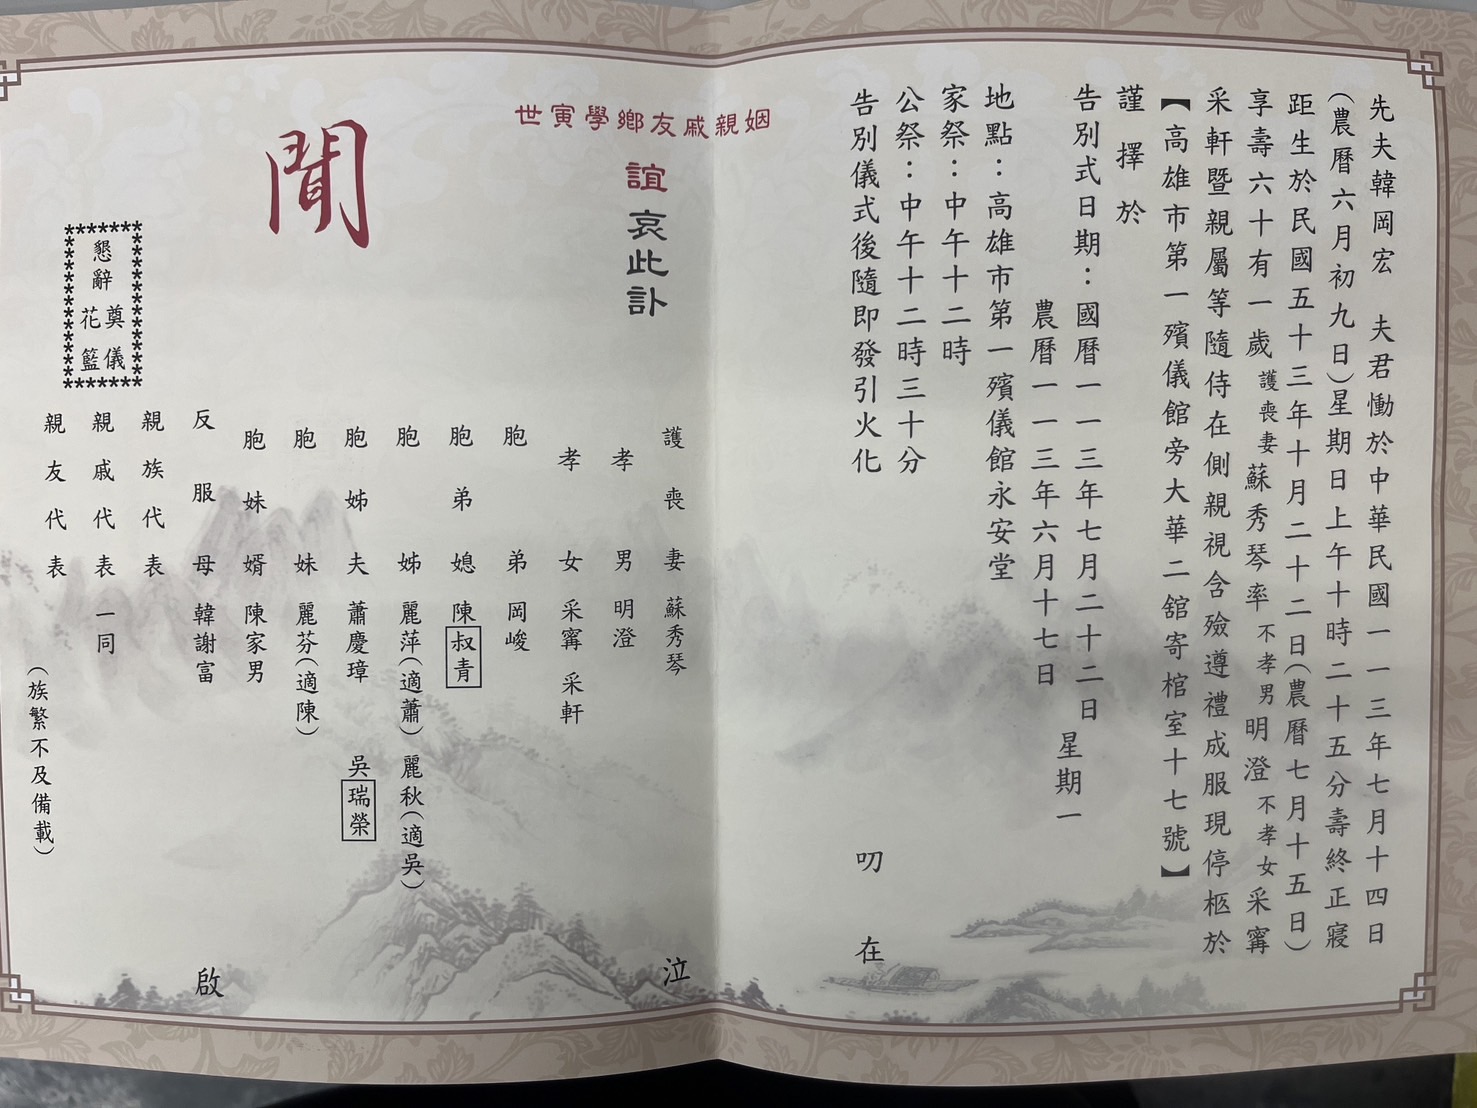 先夫韓岡宏　夫君慟於中華民國一一三年七月十四日
(農曆六月初九日)星期日上午十時二十五分壽終正寢
距生於民國五十三年十月二十二日(農曆七月十五日)
享壽六十有一歲護喪妻蘇秀琴率不孝男明澄不孝女采寗
采軒暨親屬等隨侍在側親視含殮遵禮成服現停柩於
【高雄市第一殯儀館旁大華二舘寄棺室十七號】
謹擇於
告別式日期：國曆一一三年七月二十二日
農曆一一三年六月十七日
星期一
地點：高雄市第一殯儀館永安堂
家祭：中午十二時
公祭：中午十二時三十分
告別儀式後隨即發引火化
叨在
姻親戚友鄉學寅世
誼哀此訃
聞
護喪妻蘇秀琴
泣
孝男明澄
孝女采寗 采軒
胞弟岡峻
胞弟媳陳叔青
胞姊麗萍(適蕭) 麗秋(適吳)
胞姊夫蕭慶璋 吳瑞榮
胞妹麗芬(適陳)
胞妹婿陳家男
反服母韓謝富
啟
親族代表
親戚代表一同
親友代表
(族繁不及備載)
懇辭
奠儀
花籃